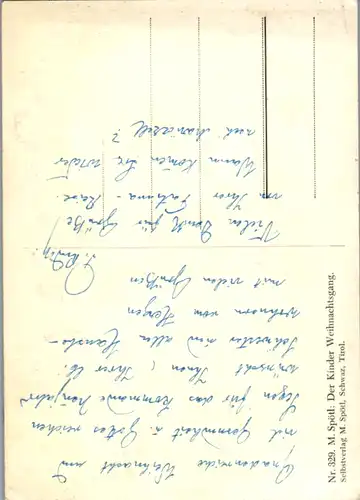 Gnadenreiche Weihnacht und
viel Gesundheit u. Gottes reichen
Segen für das kommende Neujahr
wünscht Ihnen, Ihrer lb.
Schwester und allen Hausbe-
wohnern vom Herzen
mit vielen Grüßen
Vielen Dank für Grüße
von Ihrer Fatima-Reise.
Wann kommen Sie wieder
nach Mariazell?
Nr. 329. M. Spötl: Der Kinder Weihnachtsgang.
Selbstverlag M. Spötl, Schwaz, Tirol.